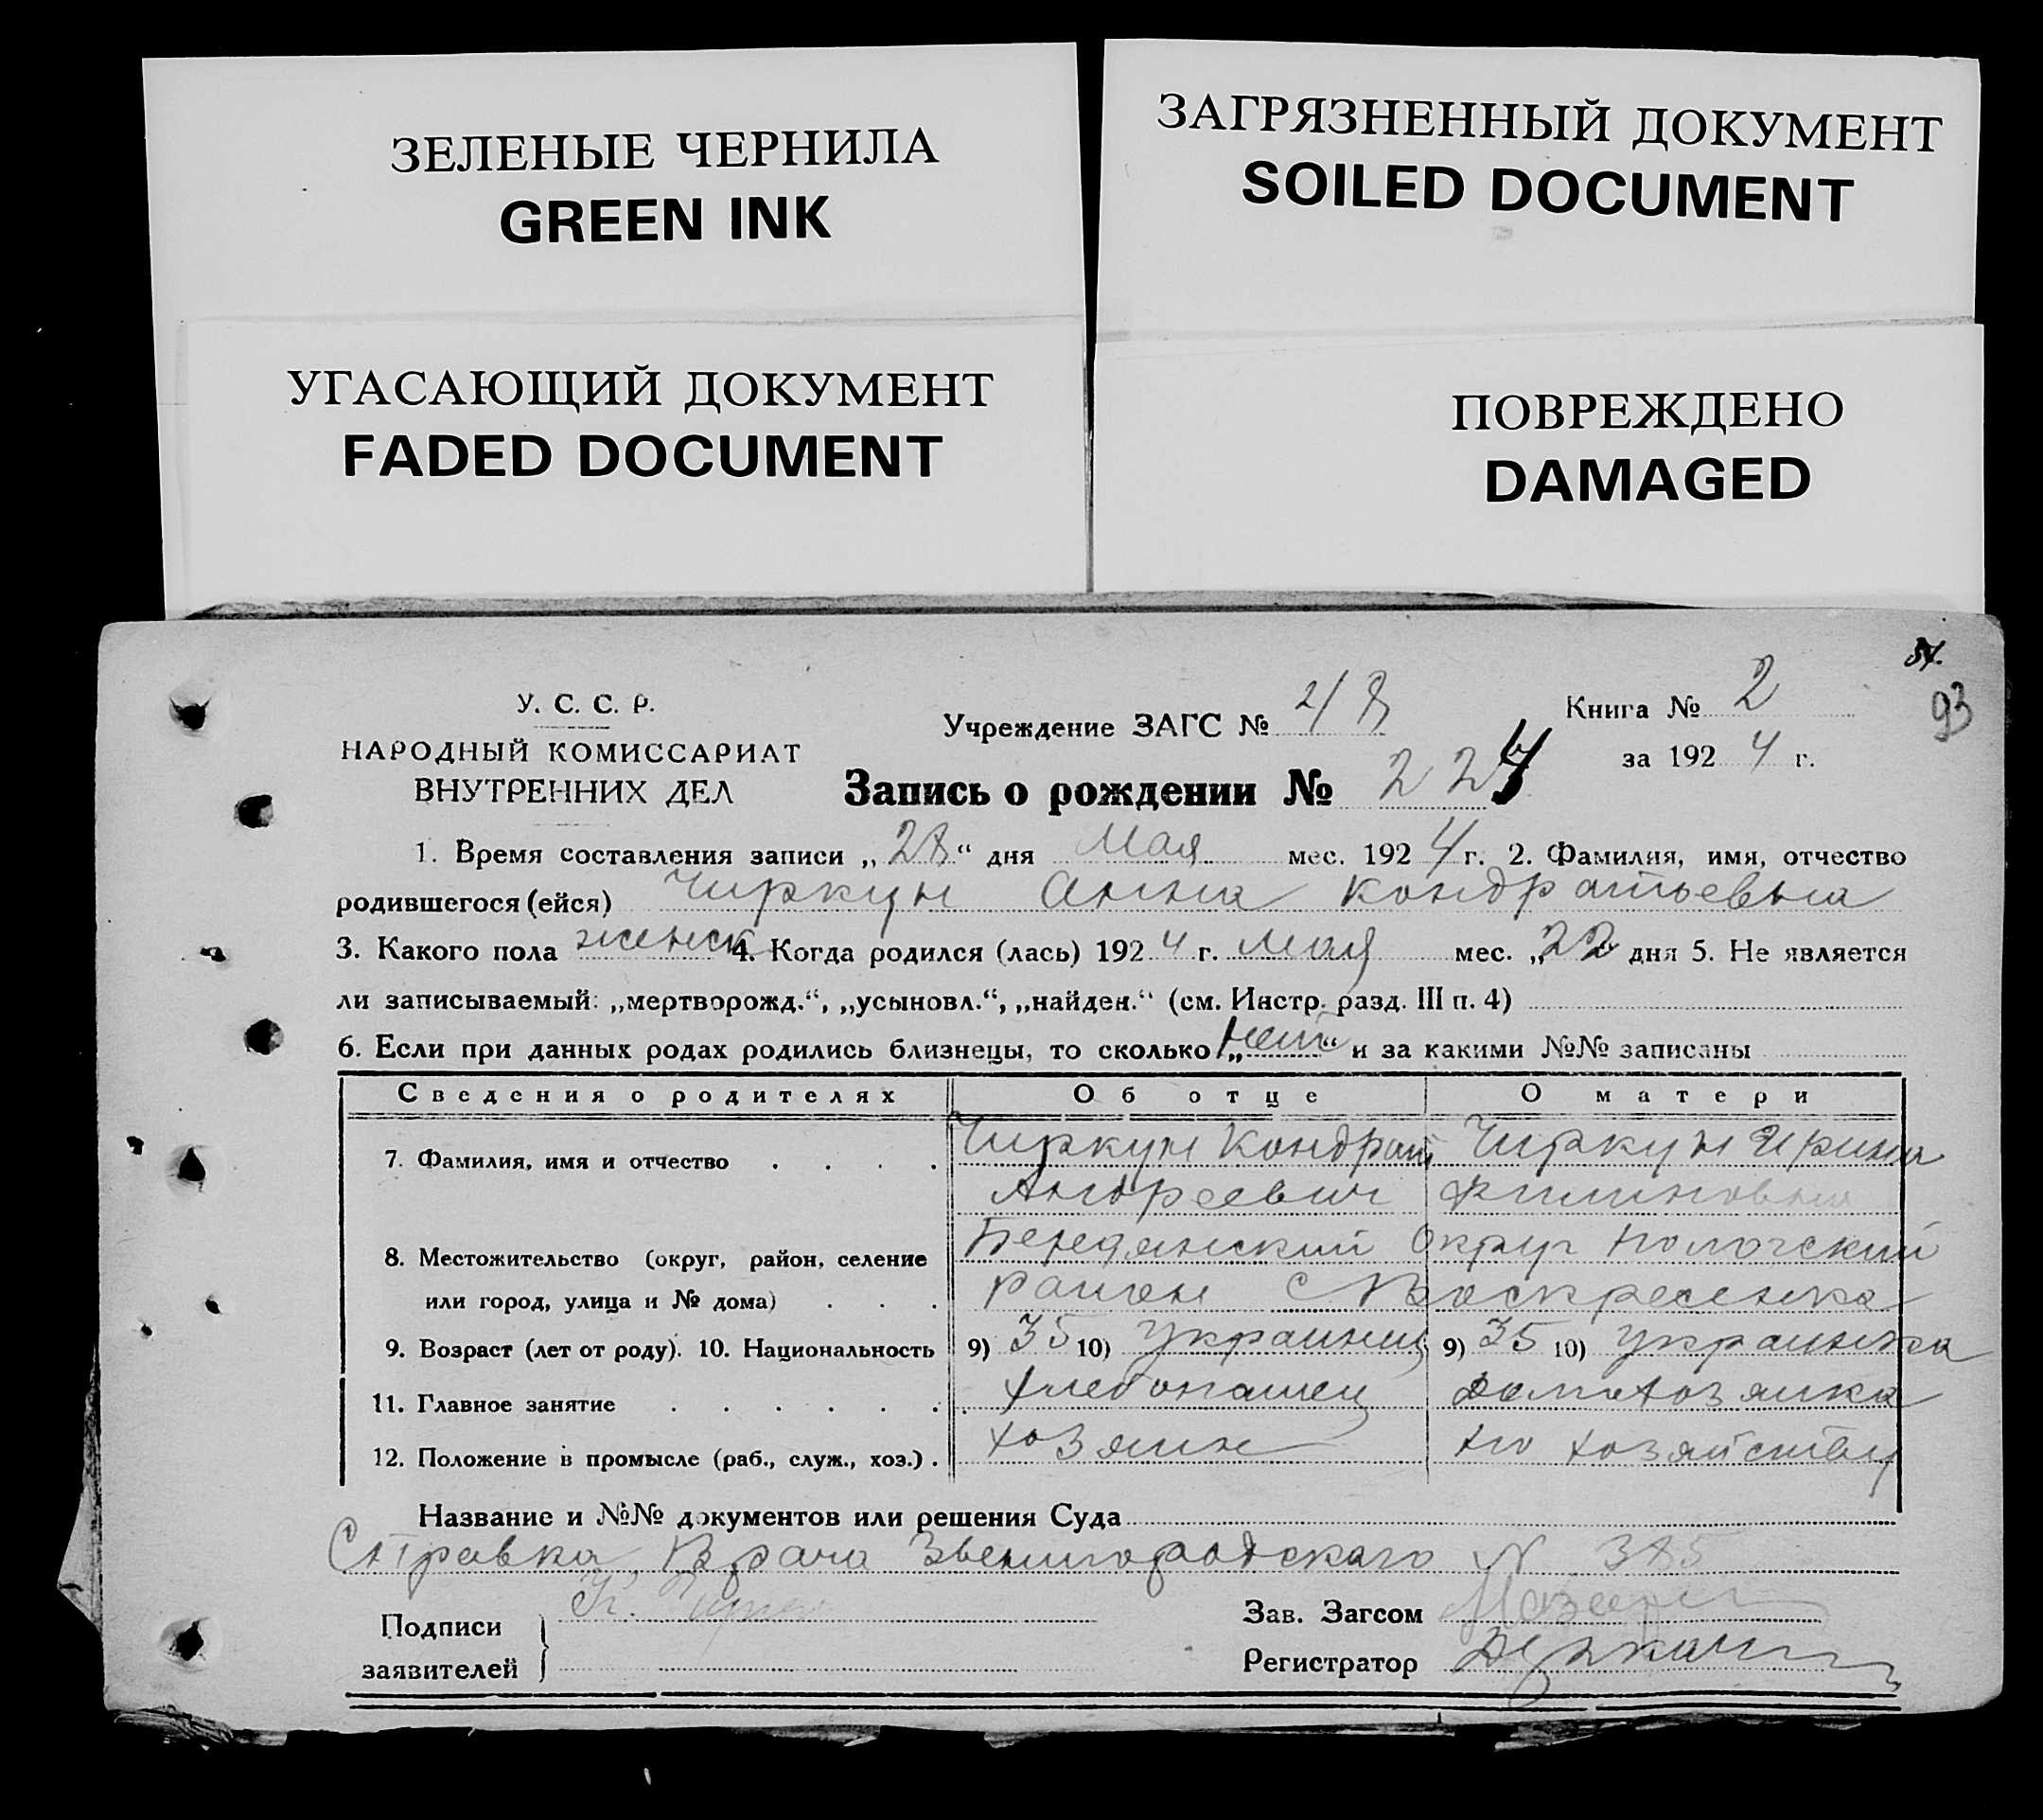 ЗЕЛЕНЫЕ ЧЕРНИЛА
GREEN INK
ЗАГРЯЗНЕННЫЙ ДОКУМЕНТ
SOILED DOCUMENT
УГАСАЮЩИЙ ДОКУМЕНТ
FADED DOCUMENT
ПОВРЕЖДЕНО
DAMAGED
93
У. С. С. Р.
НАРОДНЫЙ КОМИССАРИАТ
ВНУТРЕННИХ ДЕЛ
Учреждение ЗАГС №
Книга № 2
за 1924 г.
Запись о рождении № 224
1. Время составления записи „28“ дня Мая мес. 1924 г. 2. Фамилия, имя, отчество
родившегося (ейся) Чиркун Анна Кондратьевна
3. Какого пола женск 4. Когда родился (лась) 1924 г. мая мес. „22 дня 5. Не является
ли записываемый: „мертворожд.“, „усыновл.“, „найден.“ (см. Инстр. разд. III п. 4)
6. Если при данных родах родились близнецы, то сколько „нет“ и за какими №№ записаны
Сведения о родителях Об отце О матери
7. Фамилия, имя и отчество . . . . Чиркун Кондрат Чиркун Ирина
Андреевич Филиповна
8. Местожительство (округ, район, селение Бердянский Округ Пологский
или город, улица и № дома) . . . район с Воскресенка
9. Возраст (лет от роду). 10. Национальность 9) 35 10) украинец 9) 35 10) украинка
11. Главное занятие . . . . . . хлебопашец домохозяйка
12. Положение в промысле (раб., служ., хоз.) . хозяин по хозяйству
Название и №№ документов или решения Суда
Справка Врача Звенигородского N 385
Подписи
заявителей
Зав. Загсом
Регистратор